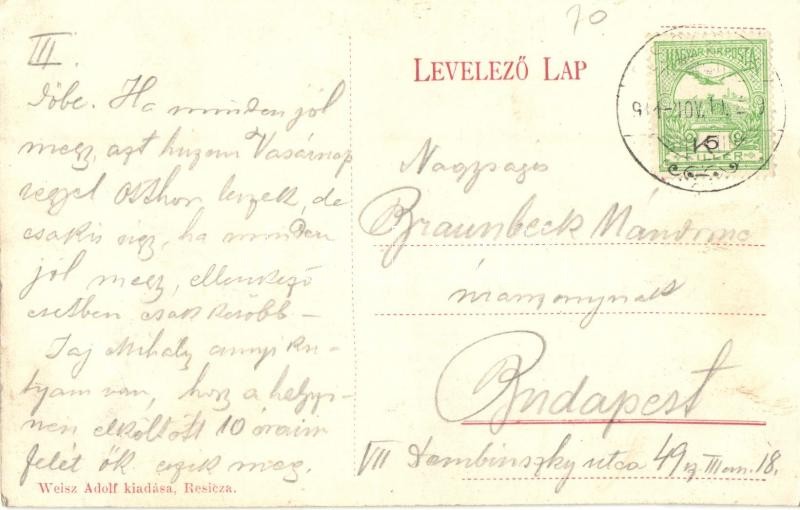 70
III.
Ha minden jól
megy, azt hiszem Vasárnap
reggel otthon leszek, de
csakis úgy, ha minden
jól megy, ellenkező
esetben csak később –
Jaj Mihály annyi ku-
tyám van, hogy a
nen elköltött 10 óraim
felét ők eszik meg.
Weisz Adolf kiadása, Resicza.
LEVELEZŐ LAP
MAGYAR KIR. POSTA
FILLÉR
Nagyságos
Braunbeck Nándorné
úrasszonynak
Budapest
VII Dembinszky utca 49 sz III em. 18.